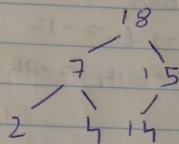 18
7 15
2 4 14